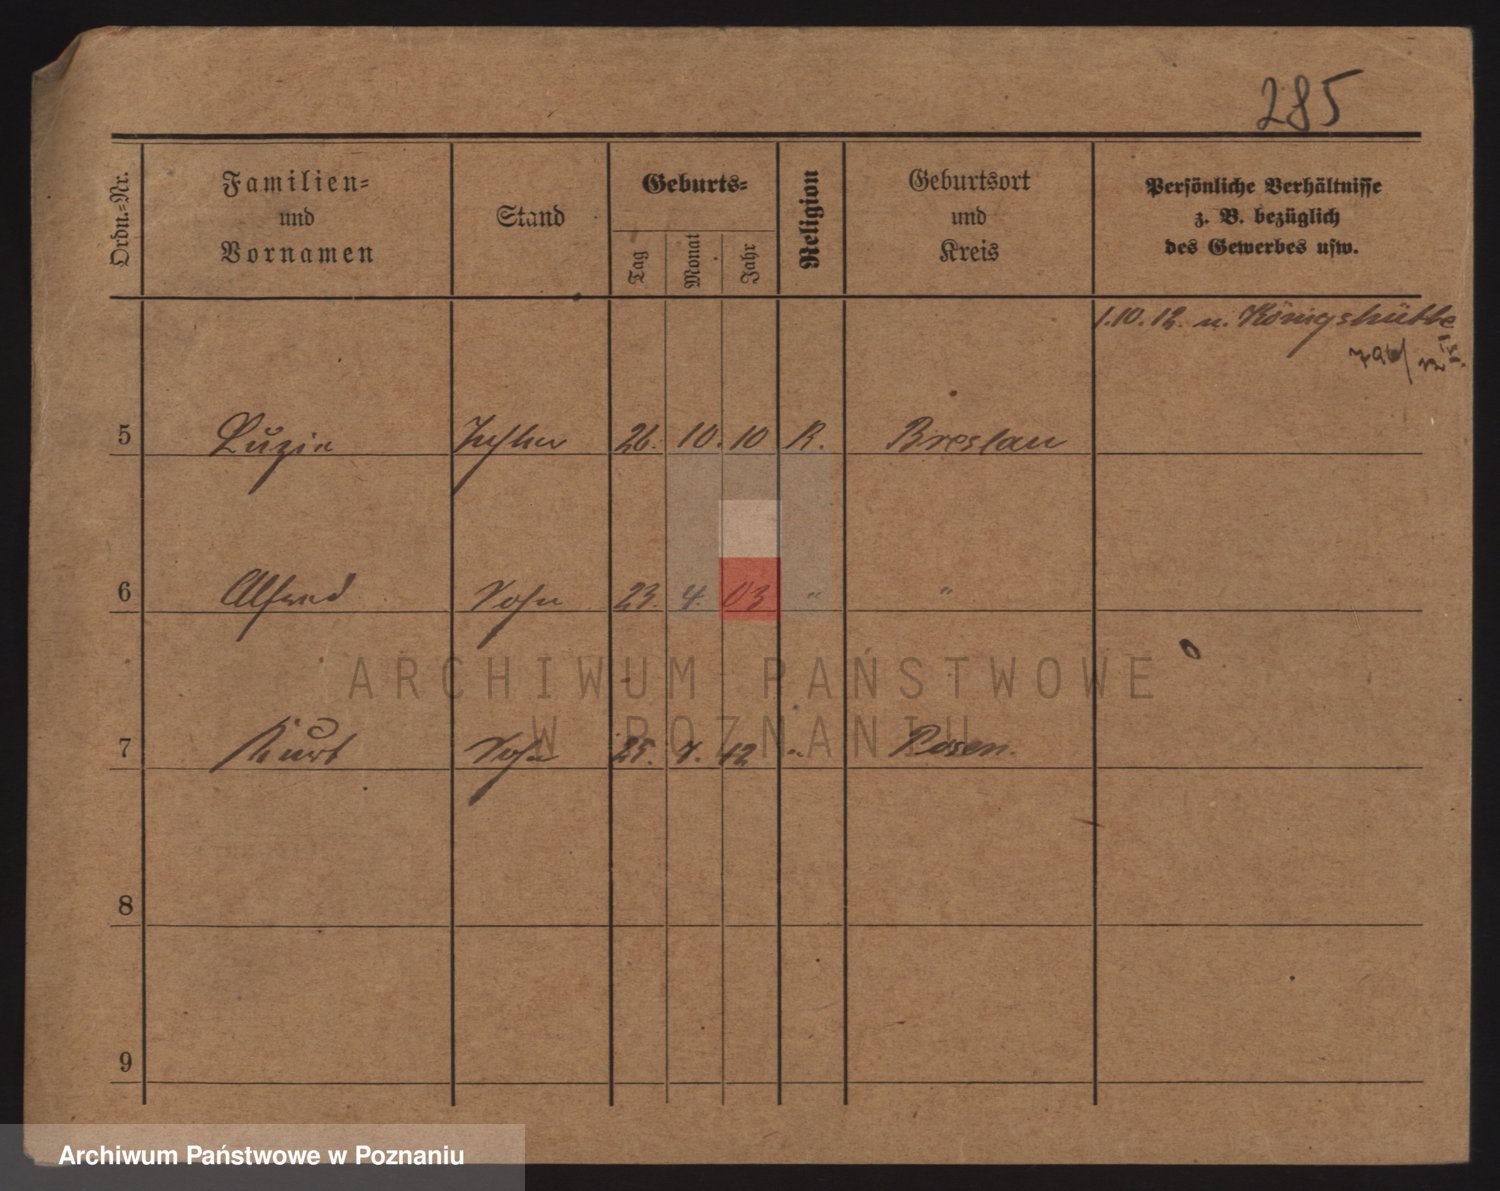 285
Ordn.-Nr.
Familien-
und
Vornamen
Stand
Geburts-
Tag
Monat
Jahr
Religion
Geburtsort
und
Kreis
Persönliche Verhältnisse
z. B. bezüglich
des Gewerbes usw.
1.10.12. n. Königshütte
5 Luzie Tochter 26. 10. 10 K. Breslau
6 Alfred Sohn 23. 4. 03 " "
7 Kurt Sohn 25. 7. 12 " Posen.
8
9
ARCHIWUM PAŃSTWOWE
W POZNANIU
Archiwum Państwowe w Poznaniu